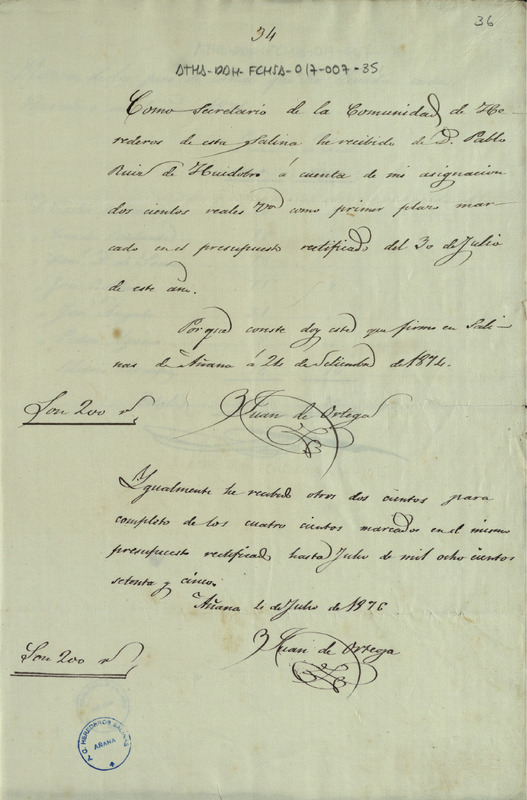 34
36
ATHA-DAH-FCHSA-017-007-35
Como Secretario de la Comunidad de He-
rederos de esta Salina he recibido de D. Pablo
Ruiz de Huidobro á cuenta de mi asignacion
dos cientos reales Von como primer plazo mar-
cado en el presupuesto rectificado del 30 de Julio
de este año.
Por que conste doy este que firmo en Sali-
nas de Añana á 24 de Setiembre de 1874.
Son 200 rs
Juan de Ortega
Ygualmente he recibido otros dos cientos para
completo de los cuatro cientos marcados en el mismo
presupuesto rectificado hasta Julio de mil ocho cientos
setenta y cinco.
Añana 4 de Julio de 1876
Juan de Ortega
Son 200 rs
HEREDEROS SALINAS
AÑANA